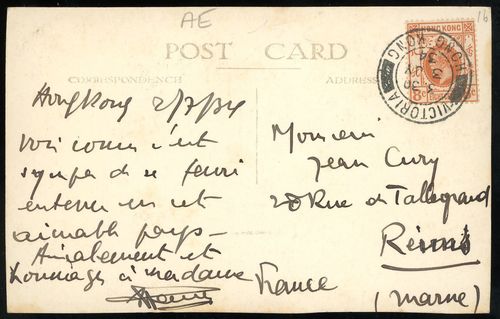 AE
16
POST CARD
CORRESPONDENCE
ADDRESS
HONG KONG
VICTORIA
HONG-KONG
Hongkong 2/7/34
Voici comme c'est
sympa de se
enterrer en cet
aimable pays -
Amicalement et
hommages à madame
Monsieur
Jean Cury
28 Rue de Talleyrand
Reims
France
(Marne)